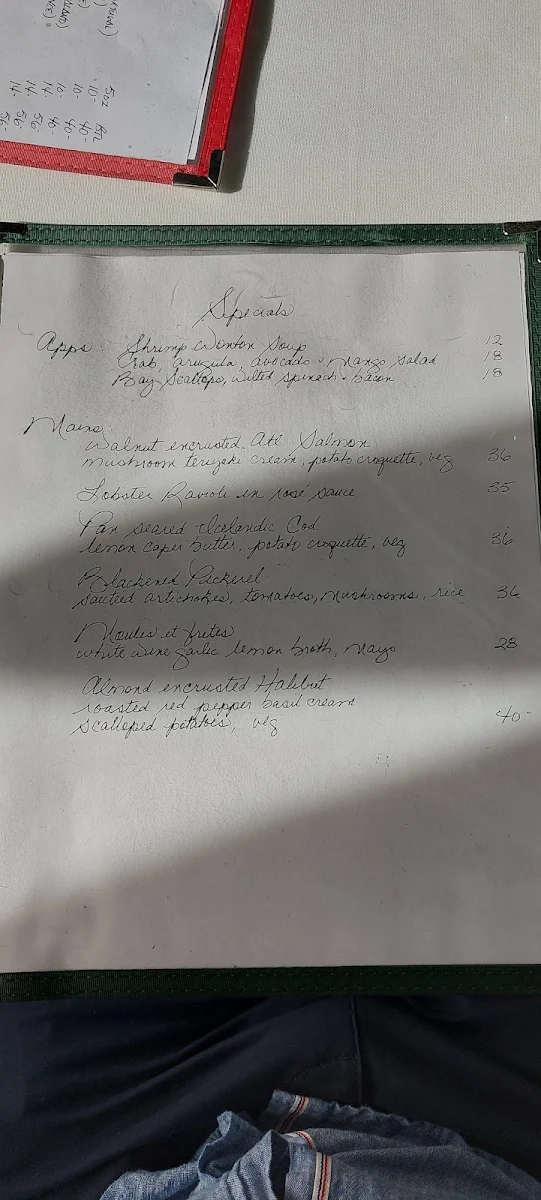 5oz Btl
10- 40-
10- 40-
14- 56-
10- 40-
14- 56-
14- 56-
Specials
Apps: Shrimp Wonton Soup 12
Crab, arugula, avocado + Mango Salad 18
Bay Scallops, wilted spinach + bacon 18
Mains
Walnut encrusted Atl Salmon
mushroom teriyaki cream, potato croquette, veg 36
Lobster Ravioli in rosé sauce 35
Pan seared Icelandic Cod
lemon caper butter, potato croquette, veg 36
Blackened Pickerel
sauteed artichokes, tomatoes, mushrooms, rice 36
Moules et frites
white wine garlic lemon broth, mayo 28
Almond encrusted Halibut
roasted red pepper basil cream
scalloped potatoes, veg 40-